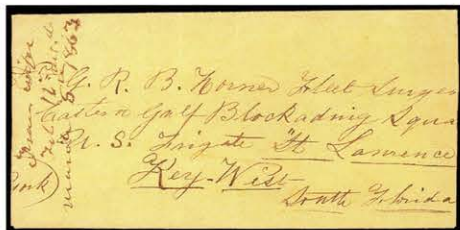 From wife
Feb. 12
March 5 1863
G. R. B. Horner Fleet Surgeon
Eastern Gulf Blockading Squa
U. S. Frigate "St Lawrence
Key-West
South Florida